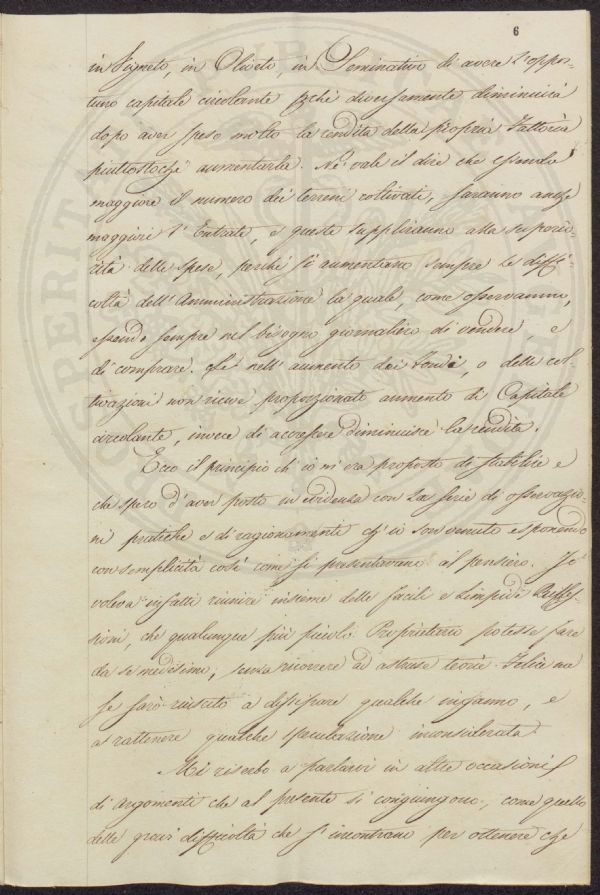 6
in Vigneto, in Oliveto, in Seminativo di avere l'oppor-
tuno capitale circolante pchè diversamente diminuirà
dopo aver speso molto la rendita della propria Fattoria
piuttostochè aumentarla. Nè vale il dire che essendo
maggiore il numero dei terreni coltivati, saranno anche
maggiori l'Entrate, e queste suppliranno alla superio-
rità delle Spese, perchè si aumentano sempre le diffi
coltà dell'Amministrazione la quale, come osservammo,
essendo sempre nel bisogno giornaliero di vendere e
di comprare. Se nell'aumento dei fondi, o delle col-
tivazioni non riceve proporzionato aumento di Capitale
circolante, invece di accrescere diminuisce la rendita.
Ecco il principio ch'io mi era proposto di stabilire e
che spero d'aver posto in evidenza con la serie di osservazio-
ni pratiche e di ragionamenti ch'io son venuto esponendo
con semplicità così come si presentavano al pensiero. Io
voleva infatti riunire insieme delle facili e limpide Rifles-
sioni, che qualunque più piccolo Proprietario potesse fare
da se medesimo, senza ricorrere ad astruse teorie. Felice me
se sarò riuscito a dissipare qualche inganno, e
a rattenere qualche speculazione inconsiderata.
Mi riserbo a parlarvi in altre occasioni
di argomenti che al presente si congiungono, come quello
delle gravi difficoltà che s'incontrano per ottenere che